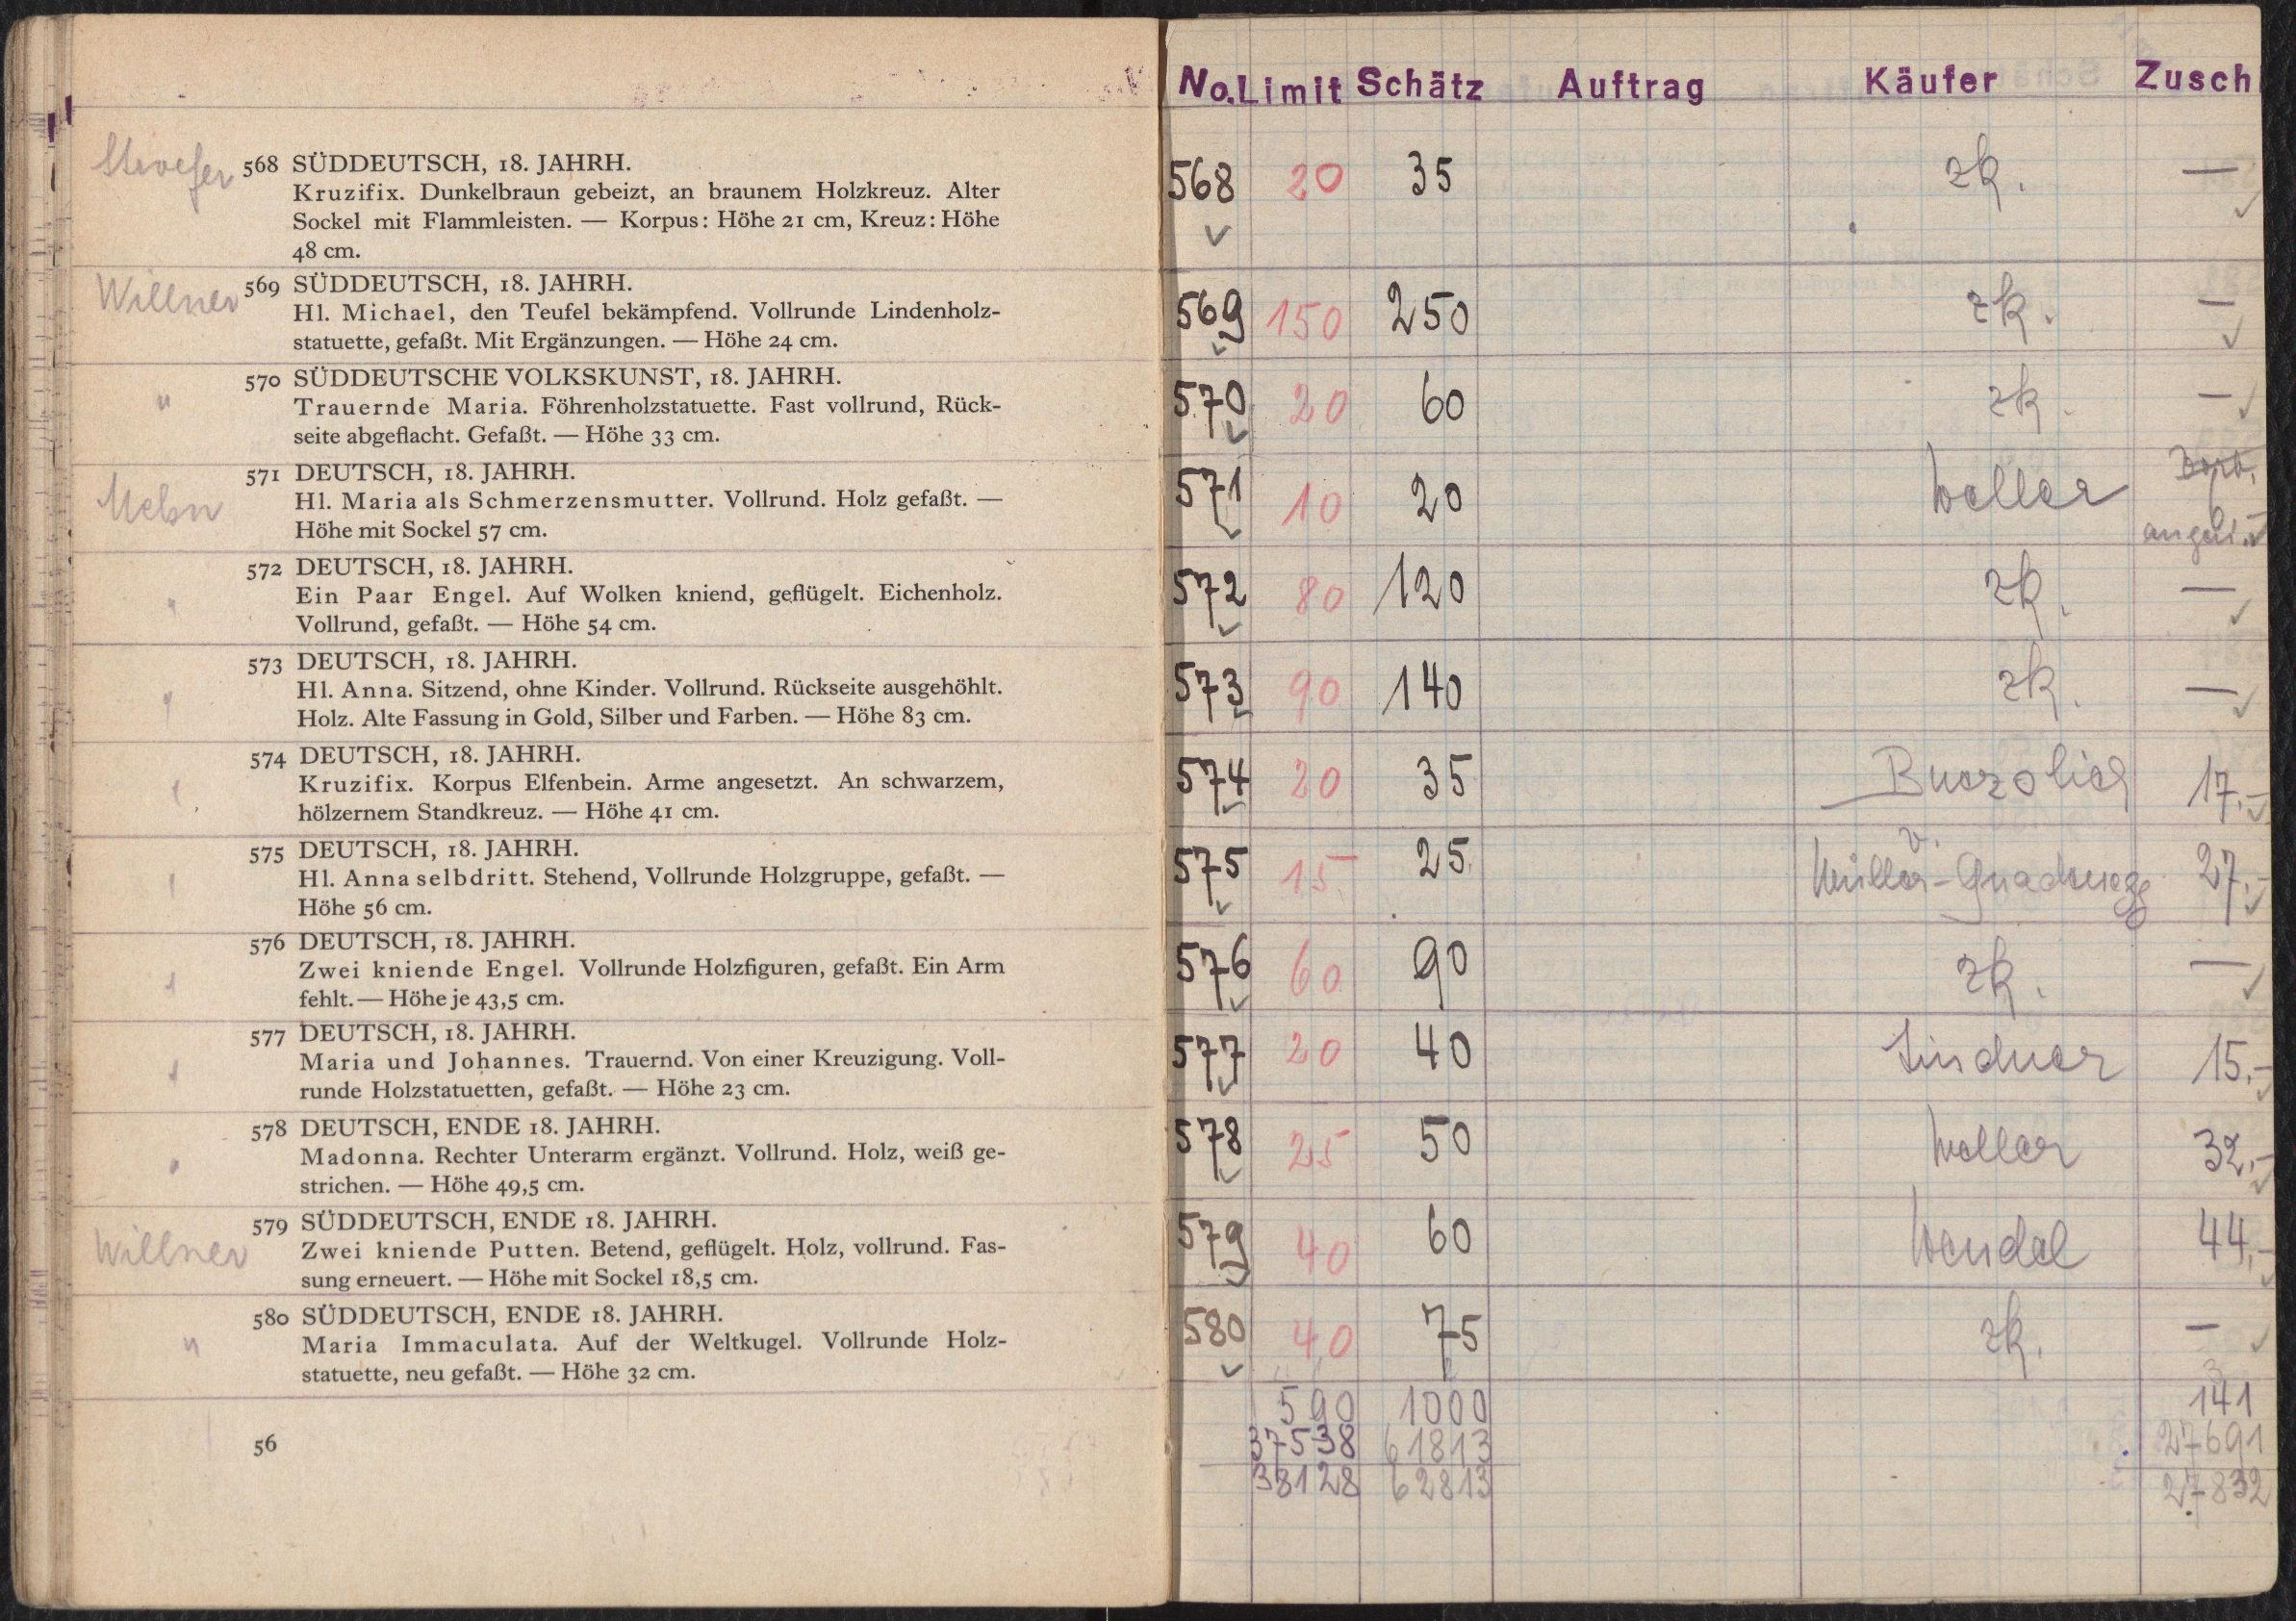 Stroefer
568 SÜDDEUTSCH, 18. JAHRH.
Kruzifix. Dunkelbraun gebeizt, an braunem Holzkreuz. Alter
Sockel mit Flammleisten. — Korpus: Höhe 21 cm, Kreuz: Höhe
48 cm.
Willner
569 SÜDDEUTSCH, 18. JAHRH.
Hl. Michael, den Teufel bekämpfend. Vollrunde Lindenholz-
statuette, gefaßt. Mit Ergänzungen. — Höhe 24 cm.
"
570 SÜDDEUTSCHE VOLKSKUNST, 18. JAHRH.
Trauernde Maria. Föhrenholzstatuette. Fast vollrund, Rück-
seite abgeflacht. Gefaßt. — Höhe 33 cm.
571 DEUTSCH, 18. JAHRH.
Hl. Maria als Schmerzensmutter. Vollrund. Holz gefaßt. —
Höhe mit Sockel 57 cm.
572 DEUTSCH, 18. JAHRH.
Ein Paar Engel. Auf Wolken kniend, geflügelt. Eichenholz.
Vollrund, gefaßt. — Höhe 54 cm.
573 DEUTSCH, 18. JAHRH.
Hl. Anna. Sitzend, ohne Kinder. Vollrund. Rückseite ausgehöhlt.
Holz. Alte Fassung in Gold, Silber und Farben. — Höhe 83 cm.
574 DEUTSCH, 18. JAHRH.
Kruzifix. Korpus Elfenbein. Arme angesetzt. An schwarzem,
hölzernem Standkreuz. — Höhe 41 cm.
575 DEUTSCH, 18. JAHRH.
Hl. Anna selbdritt. Stehend, Vollrunde Holzgruppe, gefaßt. —
Höhe 56 cm.
576 DEUTSCH, 18. JAHRH.
Zwei kniende Engel. Vollrunde Holzfiguren, gefaßt. Ein Arm
fehlt. — Höhe je 43,5 cm.
577 DEUTSCH, 18. JAHRH.
Maria und Johannes. Trauernd. Von einer Kreuzigung. Voll-
runde Holzstatuetten, gefaßt. — Höhe 23 cm.
578 DEUTSCH, ENDE 18. JAHRH.
Madonna. Rechter Unterarm ergänzt. Vollrund. Holz, weiß ge-
strichen. — Höhe 49,5 cm.
Willner
579 SÜDDEUTSCH, ENDE 18. JAHRH.
Zwei kniende Putten. Betend, geflügelt. Holz, vollrund. Fas-
sung erneuert. — Höhe mit Sockel 18,5 cm.
"
580 SÜDDEUTSCH, ENDE 18. JAHRH.
Maria Immaculata. Auf der Weltkugel. Vollrunde Holz-
statuette, neu gefaßt. — Höhe 32 cm.
56
No. Limit Schätz Auftrag Käufer Zusch
568 20 35 zk. —
569 150 250 zk. —
570 20 60 zk. —
571 10 20 Weller
572 80 120 zk. —
573 90 140 zk. —
574 20 35 17.-
575 15 25 v. Müller- 27.-
576 60 90 zk. —
577 20 40 Lindner 15.-
578 25 50 Weller 32.-
579 40 60 Wendel 44.-
580 40 75 zk. —
590 1000 141
37538 61813 27691
38128 62813 27832